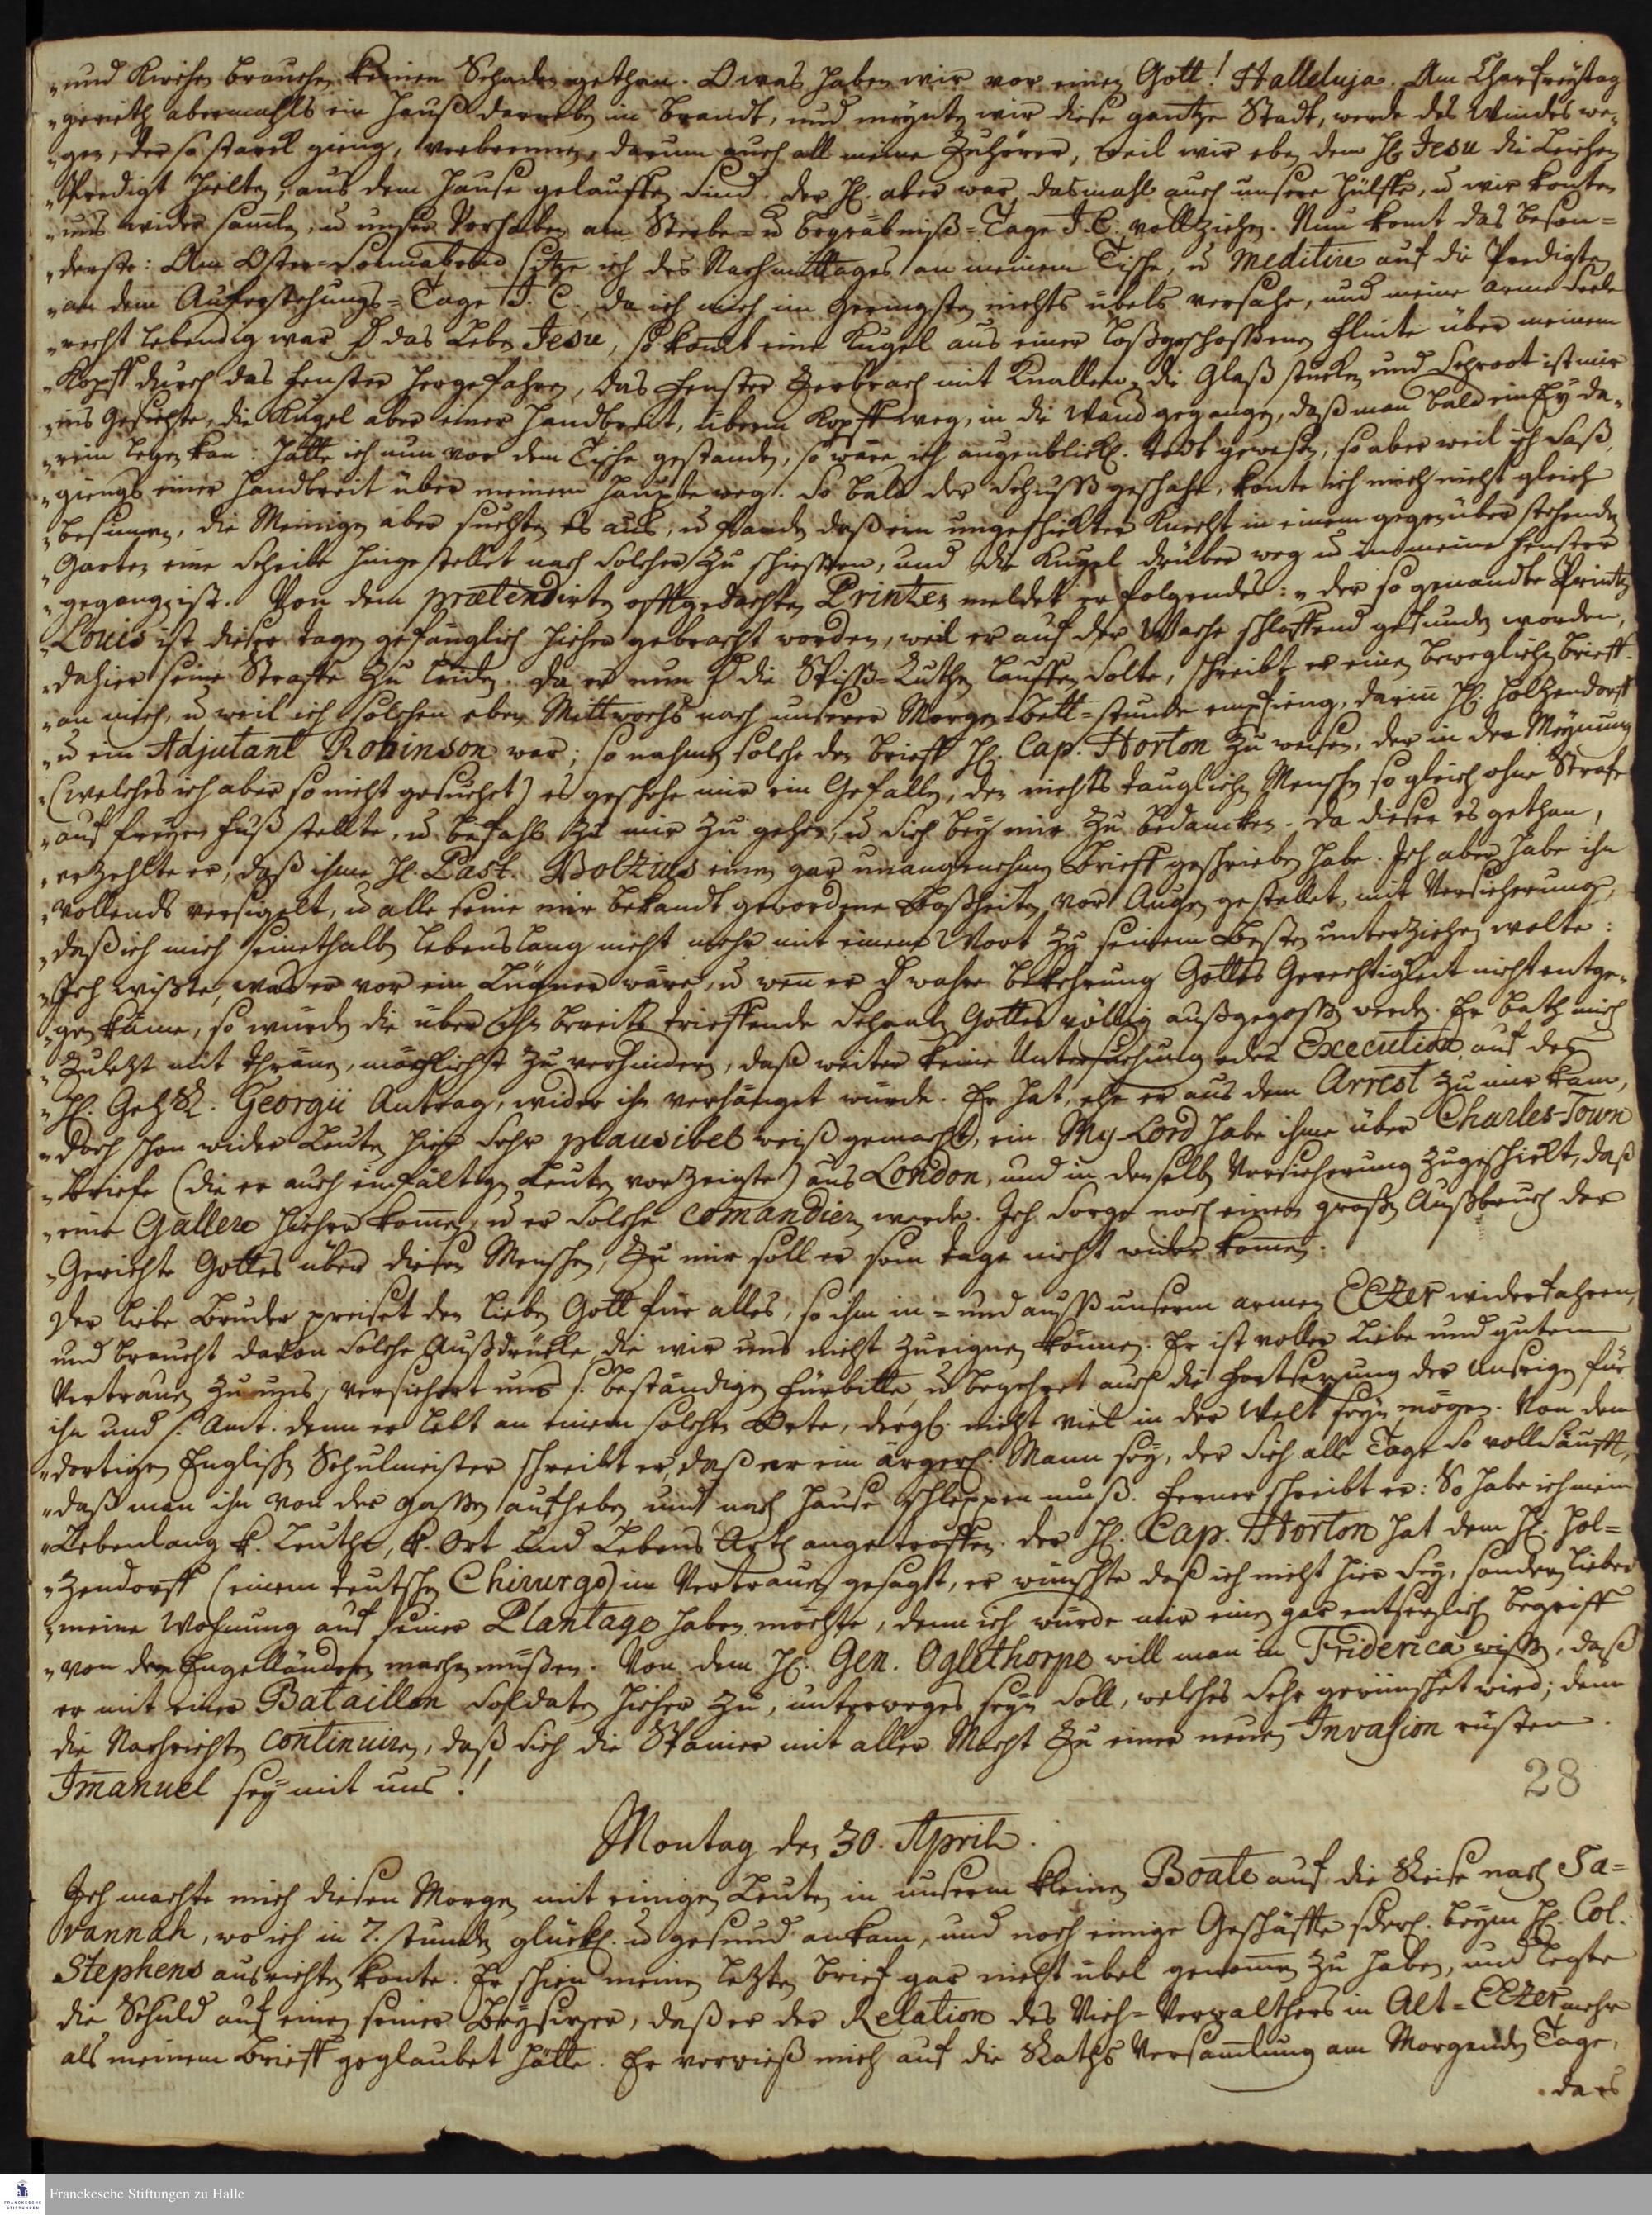 „und Kirchen brauchen keinen Schaden gethan. O was haben wir vor einen Gott! Halleluja. Am Charfreÿtag
„gerieth abermahls ein Hauß darneben in Brandt, und meÿnten wir diese gantze Stadt, werde des Windes we„
„gen, der so starck gieng, verbrennen, darum auch all meine Zuhörer, weil wir eben dem H. Jesu die Leichen
„Predigt hielten, aus dem Hause gelauffen sind. der H. aber war dasmahl auch unsere Hülffe, u. wir konten
„uns wider samlen, u. unser Vorhaben am Sterbe= u. Begräbniß=Tage J. C. vollziehen. Nun komt das beson=
„derste: Am Oster=Sonnabend sitze ich des Nachmittages an meinem Tische, u. meditire auf die Predigten
„an dem Auferstehungs=Tage J. C., da ich mich im geringsten nichts übels versahe, und meine arme Seele
„recht lebendig war d das Leben Jesu, so komt eine Kugel aus einer loßgeschoßenen Flinte über meinem
„Kopff durch das Fenster hergefahren, das Fenster zerbrach mit Knallen, die Glaß stücken und Schroot ist mir
„ins Gesichte, die Kugel aber einer Handbreit, überm Kopff weg, in die Wand gegangen, daß man bald ein Eÿ da„
„rein legen kan: Hätte ich nun vor dem Tische gestanden, so wäre ich augenblickl. todt gewesen, so aber weil ich saß,
„giengs einer Handbreit über meinem Haupte weg. So bald der Schuß geschahe, konte ich mich nicht gleich
„besinnen, die Meinigen aber suchten es aus, u. fanden daß ein ungeschickter Knecht in einem gegenüber stehenden
„Garten eine Scheibe hingestellet nach solcher zu schießen, und die Kugel drüber weg u. in meine Fenster
„gegangen ist. Von dem prætendirten offtgedachten Printzen meldet er folgendes: „der so genandte Printz
„Louis ist dieser Tagen gefänglich hieher gebracht worden, weil er auf der Wache schlaffend gefunden worden,
„dahier seine Straffe zu leiden. Da er nun d die Spiß=Ruthen lauffen solte, schreibt er einen beweglichen Brieff
„an mich, u. weil ich solchen eben Mittwochs nach unserer Morgen=Bett=stunde empfieng, darinn H. Holtzendorff
„u. ein Adjutant Robinson war; so nahmen solche den Brieff H. Cap. Horton zu weisen, der in der Meÿnung
„(welches ich aber so nicht gesuchet) es geschehe mir ein Gefallen, den nichts tauglichen Menschen so gleich ohne Strafe
„auf freÿen Fuß stellte, u. befahl zu mir zu gehen, u. sich beÿ mir zu bedancken. Da dieser es gethan,
„erzehlte er, daß ihme H. Past. Boltzius einen gar unangenehmen Brieff geschrieben habe. Ich aber habe ihn
„vollends versigelt, u. alle seine mir bekandt gewordene Boßheiten vor Augen gestellet, mit Versicherung,
„daß ich mich seinethalben lebenslang nicht mehr mit einem Wort zu seinem Besten unterziehen wolte:
„Ich wißte, was er vor ein Lügner wäre, u. wenn er d wahre Bekehrung Gottes Gerechtigkeit nicht entge„
„gen käme, so würden die über ihn bereits trieffende Schaalen Gottes völlig außgegoßen werden. Er bath mich
„zuletzt mit thränen, möglichst zu verhindern, daß weiter keine Untersuchung oder Execution, auf des
„H. Georgii Antrag, wider ihn verhänget würde. Er hat, ehe er aus dem Arrest zu mir kam,
„doch schon wider Leuten hier sehr plausibel weiß gemacht, ein My-Lord habe ihme über Charles-Town
„Briefe (die er auch einfältigen Leuten vorzeigte) aus London, und in denselben Versicherung zugeschickt, daß
„eine Gallere hieher kome, u. er solche comandieren werde. Ich sorge noch einen großen Außbruch der
„Gerichte Gottes über diesen Menschen, zu mir soll er sein tage nicht wider komen.
Der liebe Bruder preiset den lieben Gott für alles, so ihm in= und außer unserm armen EEzer widerfahren,
und braucht davon solche Außdrücke, die wir uns nicht zueignen können. Er ist voller Liebe und gutem
Vertrauen zu uns, versichert uns s. beständigen Fürbitte, u. begehret auch die Fortsetzung der Unsrigen für
ihn und s. Amt. denn er lebt an einem solchen Orte, dergl. nicht viel in der Welt seÿn mögen. Von dem
„dortigen Englischen Schulmeister schreibt er, daß er ein ärgerl. Mann seÿ, der sich alle Tage so voll säufft,
„daß man ihn von der gaßen aufheben und nach Hause schleppen muß. Ferner schreibt er: So habe ich mein
„Lebenlang k. Leuthe, k. Ort und Lebens Arth angetroffen. der H. Cap. Horton hat dem H. Hol=
„zendorff (einem teutschen Chirurgo) im Vertrauen gesagt, er wünschte daß ich nicht hier seÿ, sondern lieber
„meine Wohnung auf seiner Plantage haben möchte, denn ich würde mir einen gar entsezlichen Begriff
„von den Engelländern machen müßen. Von dem H. Gen. Oglethorpe will man in Friderica wißen, daß
er mit einer Bataillon Soldaten hieher zu, unterweges seÿn soll, welches sehr gewünschet wird; denn
die Nachrichten continuiren, daß sich die Spanier mit aller Macht zu einer neuen Invasion rüsten.
Imanuel seÿ mit uns!
28
Montag den 30. April.
Ich machte mich diesen Morgen mit einigen Leuten in unserm kleinen Boate auf die Reise nach Sa=
vannah, wo ich in 7. stunden glückl. u. gesund ankam, und noch einige Geschäffte sderl. beÿm H. Col.
Stephens ausrichten konte. Er schien meinen letzten Brief gar nicht übel genomen zu haben, und legte
die Schuld auf einen seiner Beÿsizer, daß er der Relation des Vieh=Verwalthers in Alt=EEzer mehr
als meinem Brieff geglaubet hätte. Er verwieß mich auf die Raths Versamlung am Morgenden Tage,
da es
Franckesche Stiftungen zu Halle